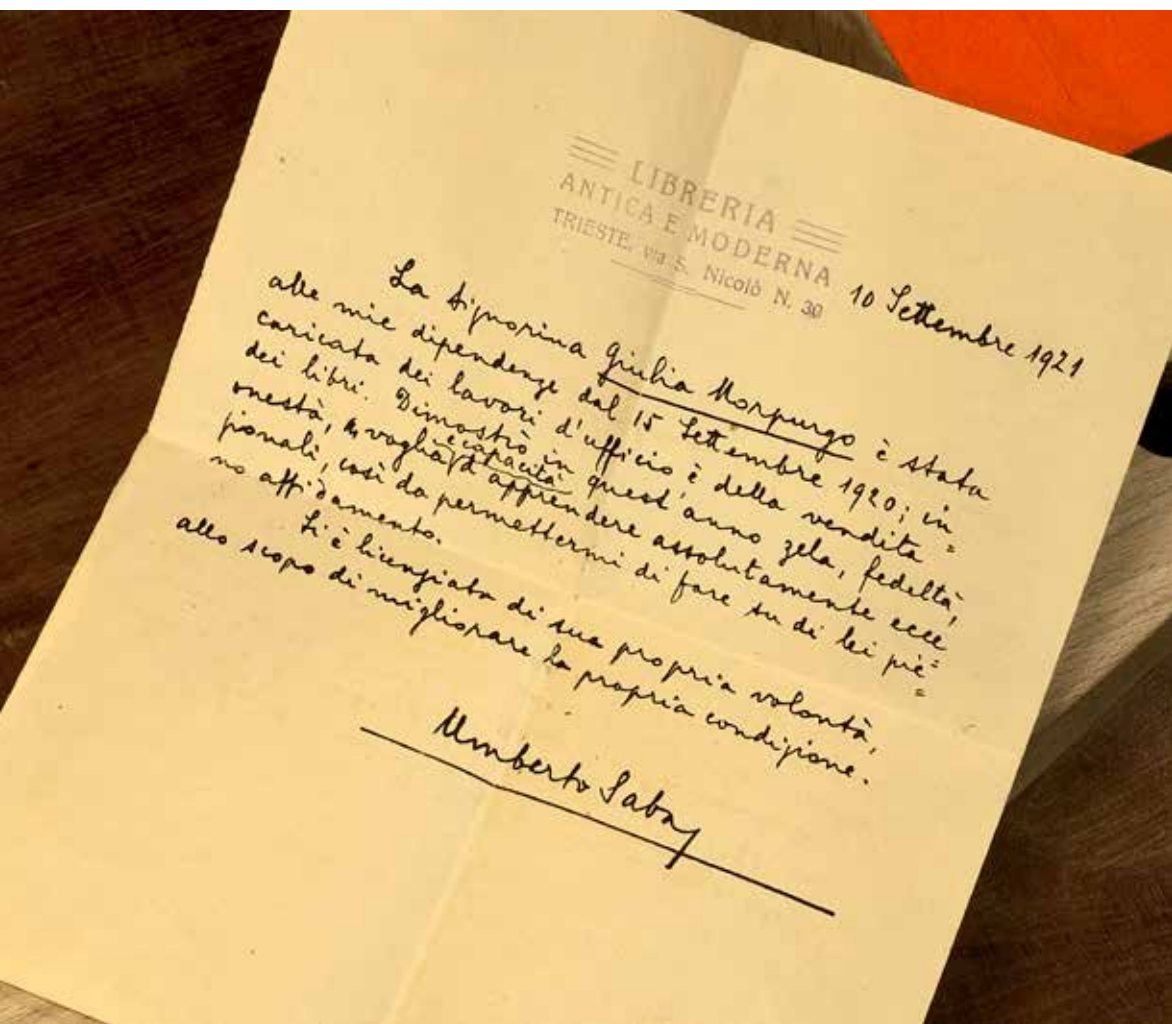 LIBRERIA
ANTICA E MODERNA
TRIESTE, via S. Nicolò N. 30
10 Settembre 1921
La Signorina Giulia Morpurgo è stata
alle mie dipendenze dal 15 Settembre 1920; in
caricata dei lavori d'ufficio è della vendita =
dei libri. Dimostrò in quest'anno zela, fedeltà,
onestà, voglia e capacità d'apprendere assolutamente ecce
zionali, così da permettermi di fare su di lei piè=
no affidamento. =
Si è licenziata di sua propria volontà,
allo scopo di migliorare la propria condizione.
Umberto Saba